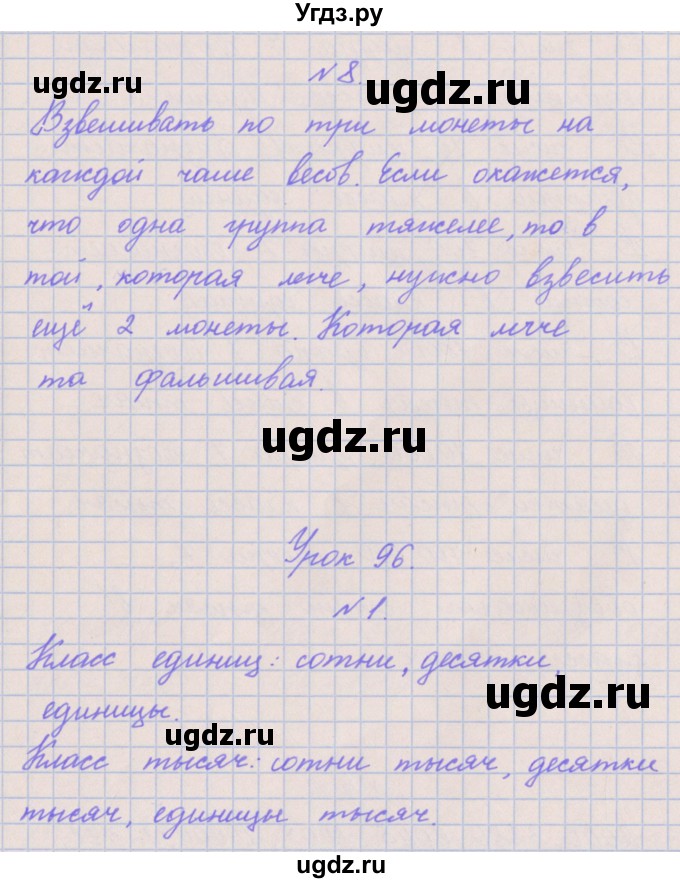 Угдз.ру
ugdz.ru
№8.
ugdz.ru
Взвешивать по три монеты на
каждой чаше весов. Если окажется,
что одна группа тяжелее, то в
той, которая легче, нужно взвесить
ещё 2 монеты. Которая легче
та фальшивая.
ugdz.ru
Урок 96.
№1.
Класс единиц: сотни, десятки,
ugdz.ru
единицы.
ugdz.ru
Класс тысяч: сотни тысяч, десятки
тысяч, единицы тысяч.
ugdz.ru